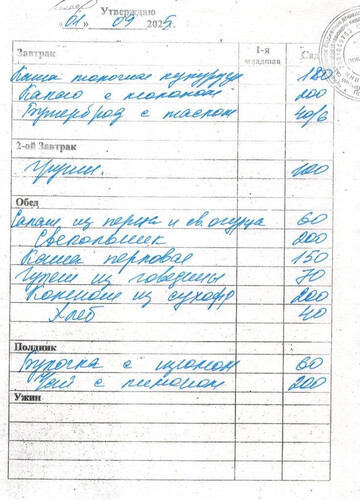 Утверждаю
« 01 » 09 2025.
Завтрак 1-я младшая Сад
Каша молочная кукуруз 180
Какао с молоком 200
Бутерброд с маслом 40/6
2-ой Завтрак
Груши. 100
Обед
Салат из перца и св. огурца 60
Свекольник 200
Каша перловая 150
Гуляш из говядины 70
Компот из сухофр 200
Хлеб 40
Полдник
Булочка с изюмом 60
Чай с лимоном 200
Ужин